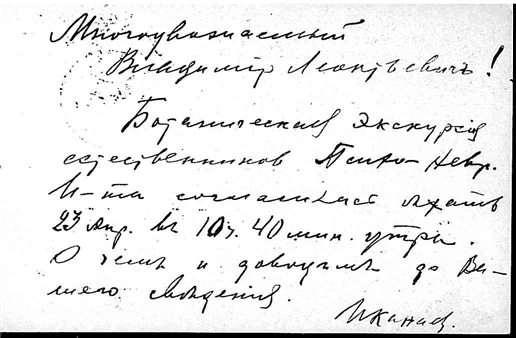 Многоуважаемый
Владимiр Леонтьевичъ!
Ботаническая экскурсiя
естественников Психо-Невр.
И-та соглашается ехать
23 Апр. въ 10 ч. 40 мин. утра.
О чемъ и доводимъ до Ва-
шего сведения.
И Канаев.